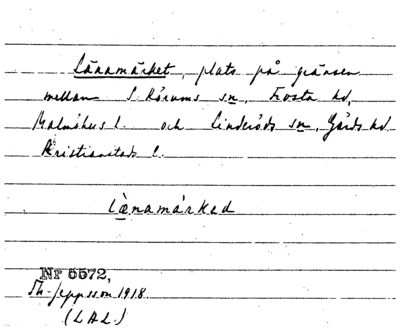 Länamärket, plats på gränsen
mellan S. Rörums sn, Frosta hd,
Malmöhus l. och Linderöds sn, Gärds hd
Kristianstads l.
Lænamárkad
Nr 5572,
Th. Jeppsson 1918.
(LAL.)